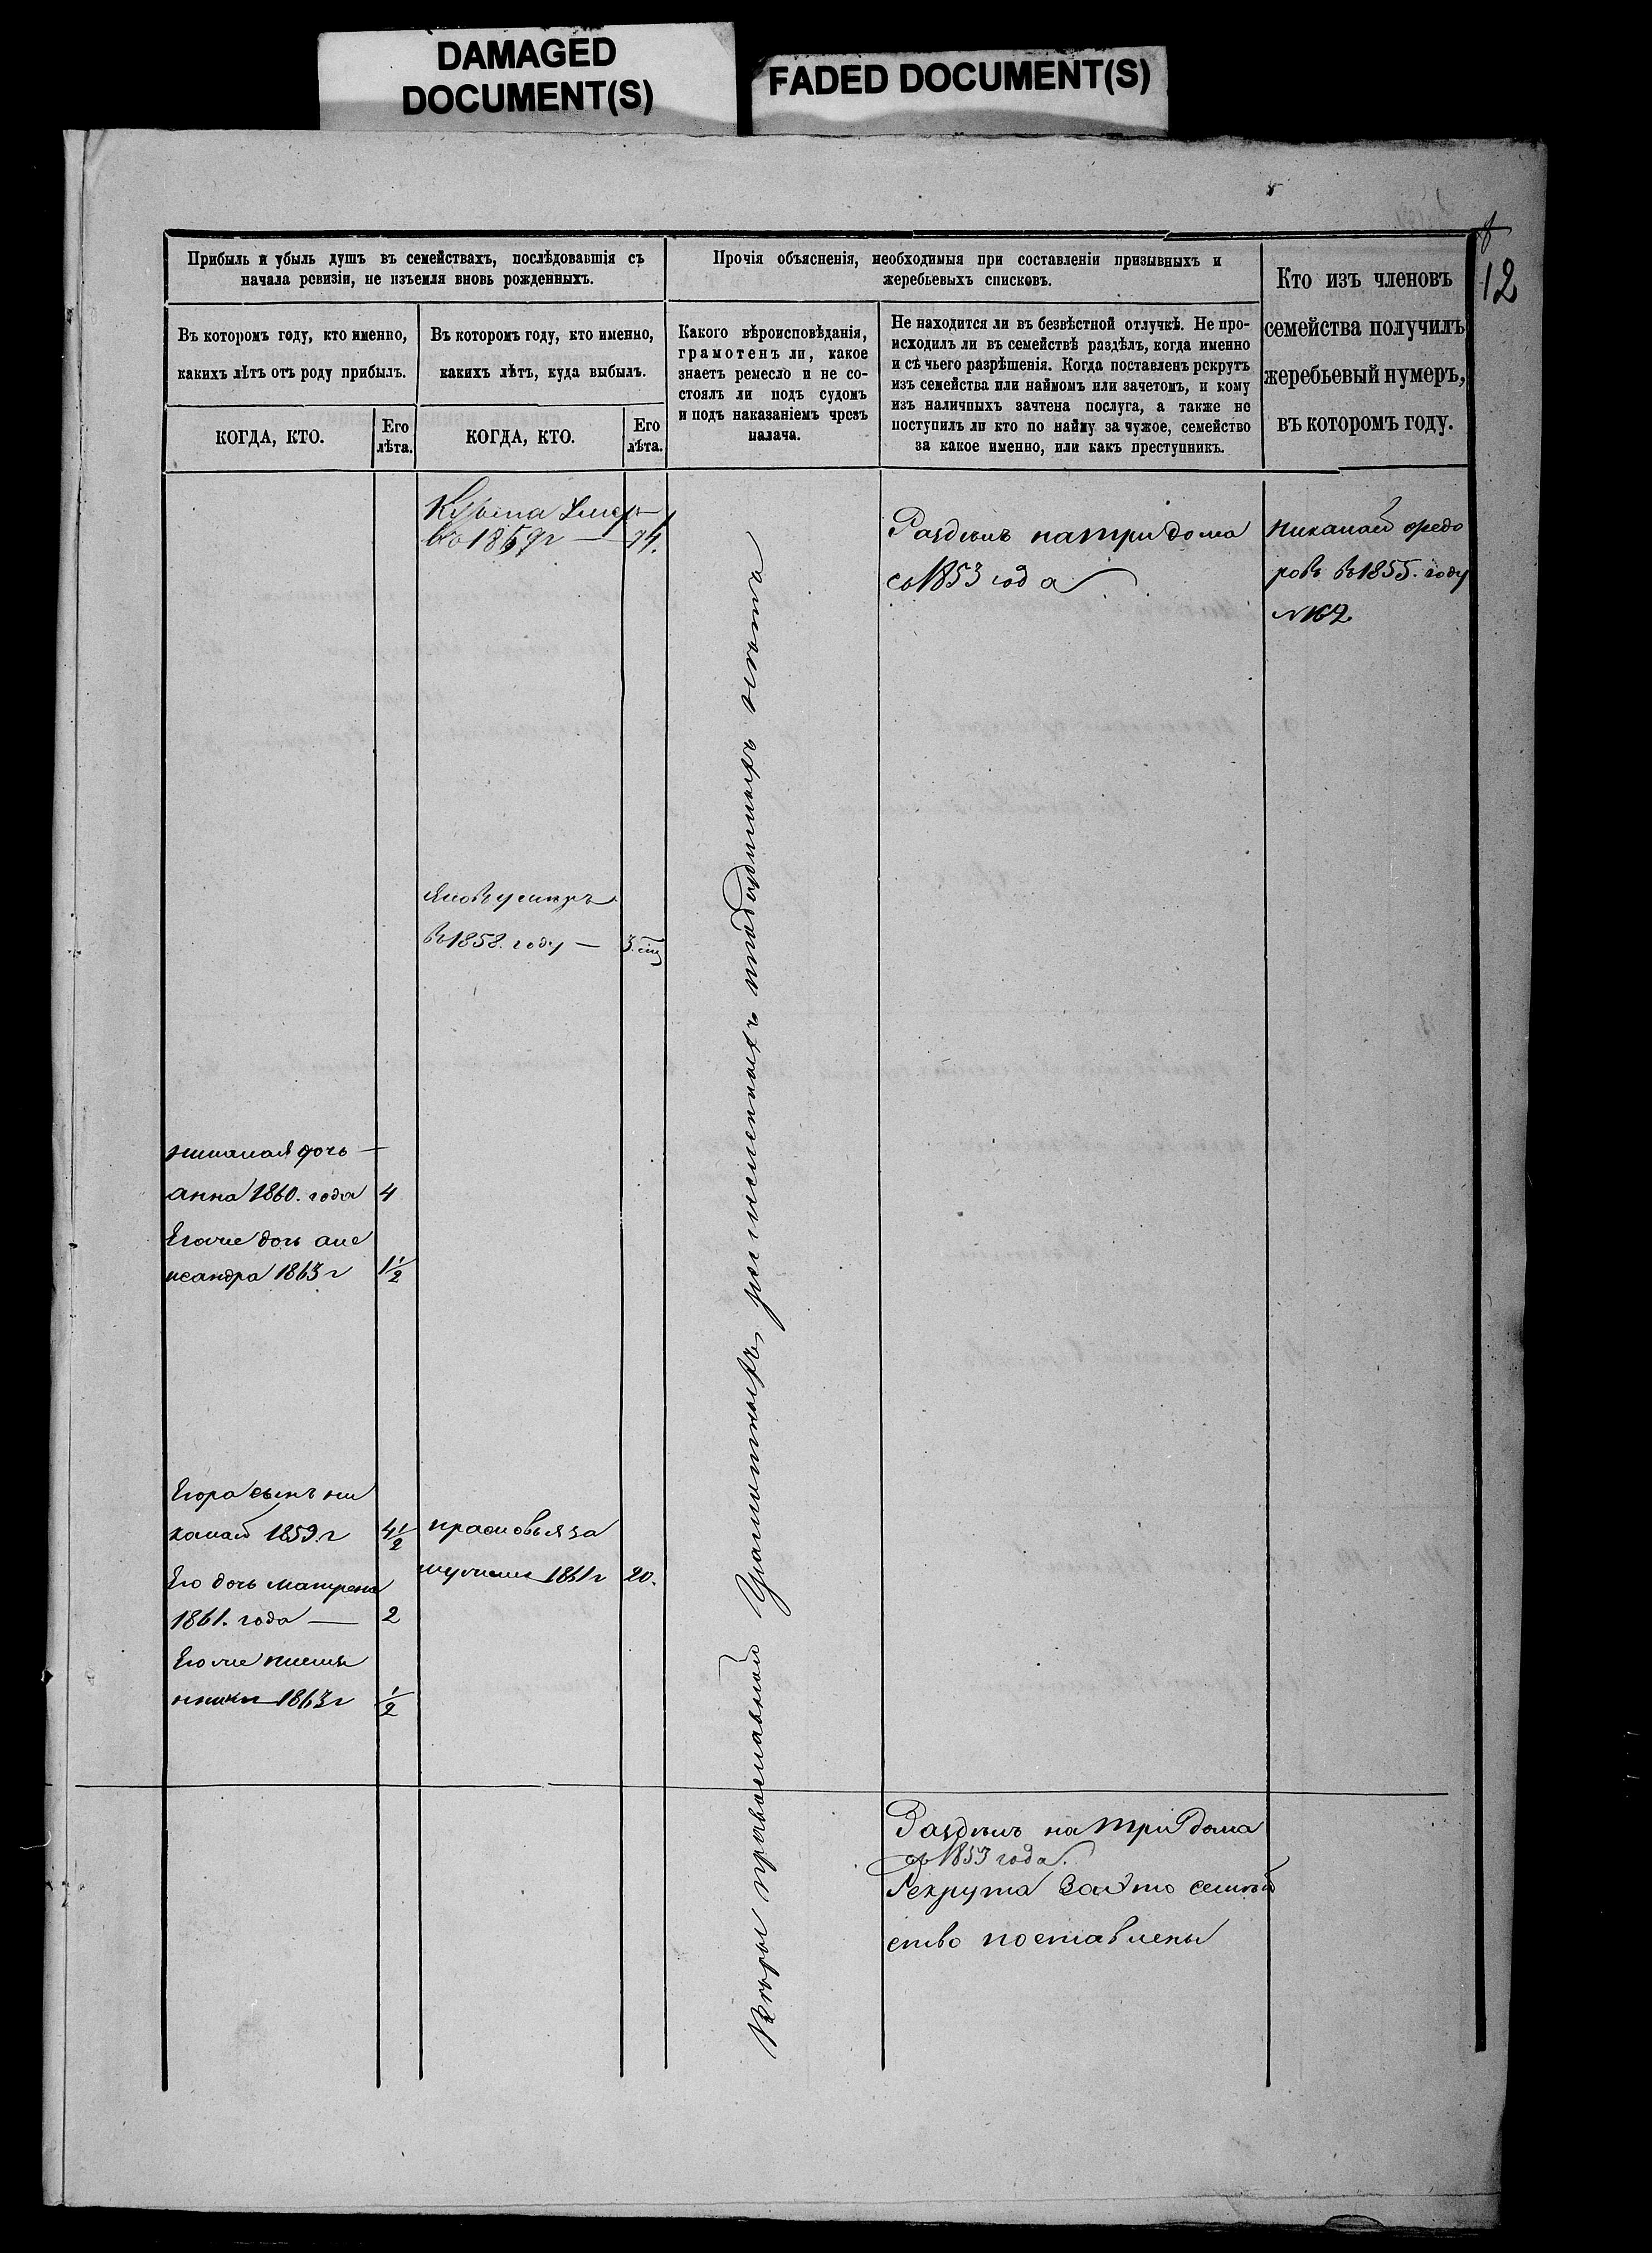 DAMAGED
DOCUMENT(S)
FADED DOCUMENT(S)
12
Прибыль и убыль душъ въ семействахъ, послѣдовавшія съ
начала ревизіи, не изъемля вновь рожденныхъ.
Въ которомъ году, кто именно,
какихъ лѣтъ отъ роду прибылъ.
КОГДА, КТО.
Его
лѣта.
Въ которомъ году, кто именно,
какихъ лѣтъ, куда выбылъ.
КОГДА, КТО.
Его
лѣта.
Прочія объясненія, необходимыя при составленіи призывныхъ и
жеребьевыхъ списковъ.
Какого вѣроисповѣданія,
грамотенъ ли, какое
знаетъ ремесло и не со-
стоялъ ли подъ судомъ
и подъ наказаніемъ чрезъ
палача.
Не находится ли въ безвѣстной отлучкѣ. Не про-
исходилъ ли въ семействѣ раздѣлъ, когда именно
и съ чьего разрѣшенія. Когда поставленъ рекрутъ
изъ семейства или наймомъ или зачетомъ, и кому
изъ наличныхъ зачтена послуга, а также не
поступилъ ли кто по найму за чужое, семейство
за какое именно, или какъ преступникъ.
Кто изъ членовъ
семейства получилъ
жеребьевый нумеръ,
въ которомъ году.
Кузьма Умеръ
въ 1859г —
74.
Яковъ умеръ
въ 1858. году —
дочь —
анна 1860. года
4
Егоже дочь але
ксандра 1863 г
1 1/2
Егора сынъ ни
колай 1859. г
4 1/2
Его дочь матрена
1861. года —
2
Егоже племя
1863 г
1/2
прасковья за
мужемъ 1861 г
20.
Вѣры православной Грамотныхъ, ремесленныхъ и подсудимыхъ нѣтъ
Раздѣлъ на три дома
съ 1853 года
николай федо
ровъ въ 1855. году
№ 162.
Раздѣлъ на три дома
съ 1853 года.
Рекрута За это семей
ство поставлены